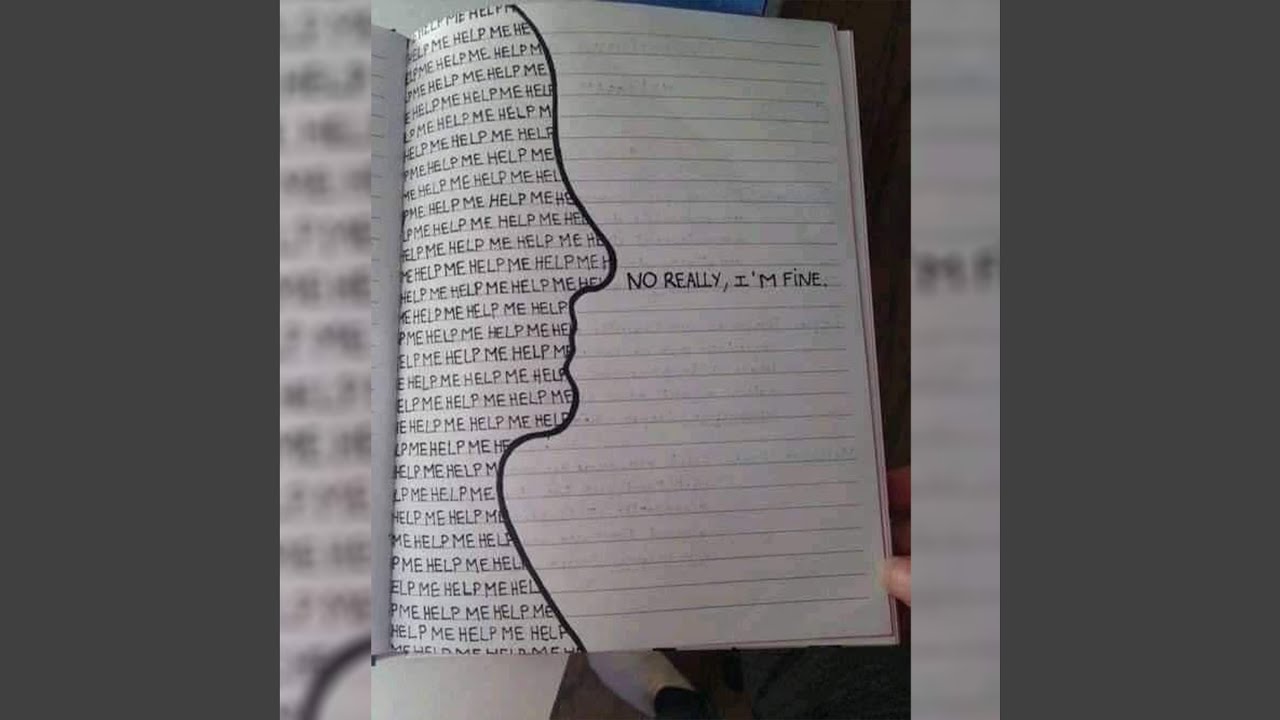 HELP ME HELP M
HELP ME HELP ME HE
ELP ME HELP ME HELP M
PME HELP ME HELP ME
E HELP ME HELP ME HELP
LP ME HELP ME HELP M
HELP ME HELP ME HELP
PME HELP ME HELP ME
ME HELP ME HELP ME HEL
PME HELP ME HELP ME HE
LPME HELP ME HELP ME HEL
ELP ME HELP ME HELP ME HE
ME HELP ME HELP ME HELP ME H
HELP ME HELP ME HELP ME HEL NO REALLY, I'M FINE.
ME HELP ME HELP ME HELP
PME HELP ME HELP ME HE
ELP ME HELP ME HELP ME
E HELP ME HELP ME HELP
ELP ME HELP ME HELP ME
E HELP ME HELP ME HELP
LPME HELP ME HE
HELP ME HELP M
LP ME HELP ME
HELP ME HELP ME
ME HELP ME HELP
PME HELP ME HELP
ELP ME HELP ME HEL
PME HELP ME HELP ME
HELP ME HELP ME HELP
ME HELP ME HELP ME HELP